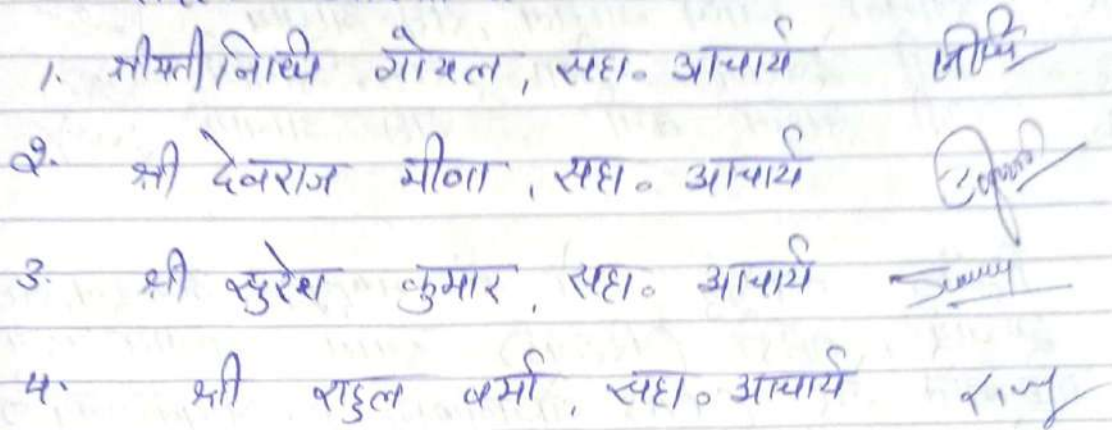 1. श्रीमती निधि गोयल, सहा० आचार्य निधि
२. श्री देवराज मीणा, सहा० आचार्य
३. श्री सुरेश कुमार, सहा० आचार्य
४. श्री राहुल वर्मा, सहा० आचार्य